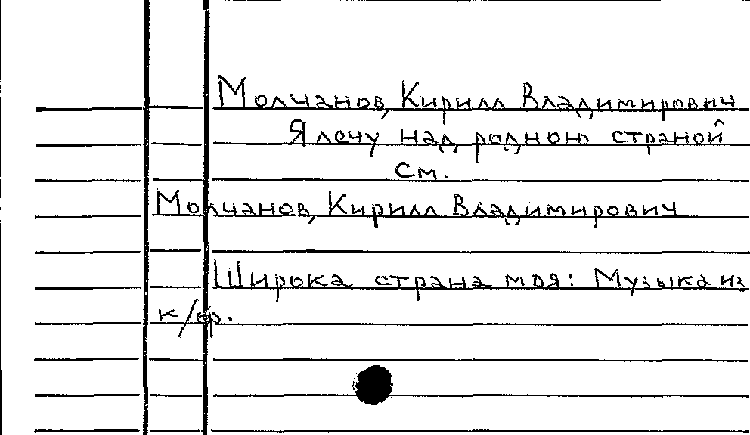 Молчанов, Кирилл Владимирович
Я лечу над родною страной
См.
Молчанов, Кирилл Владимирович
Широка страна моя: Музыка из
к/ф.